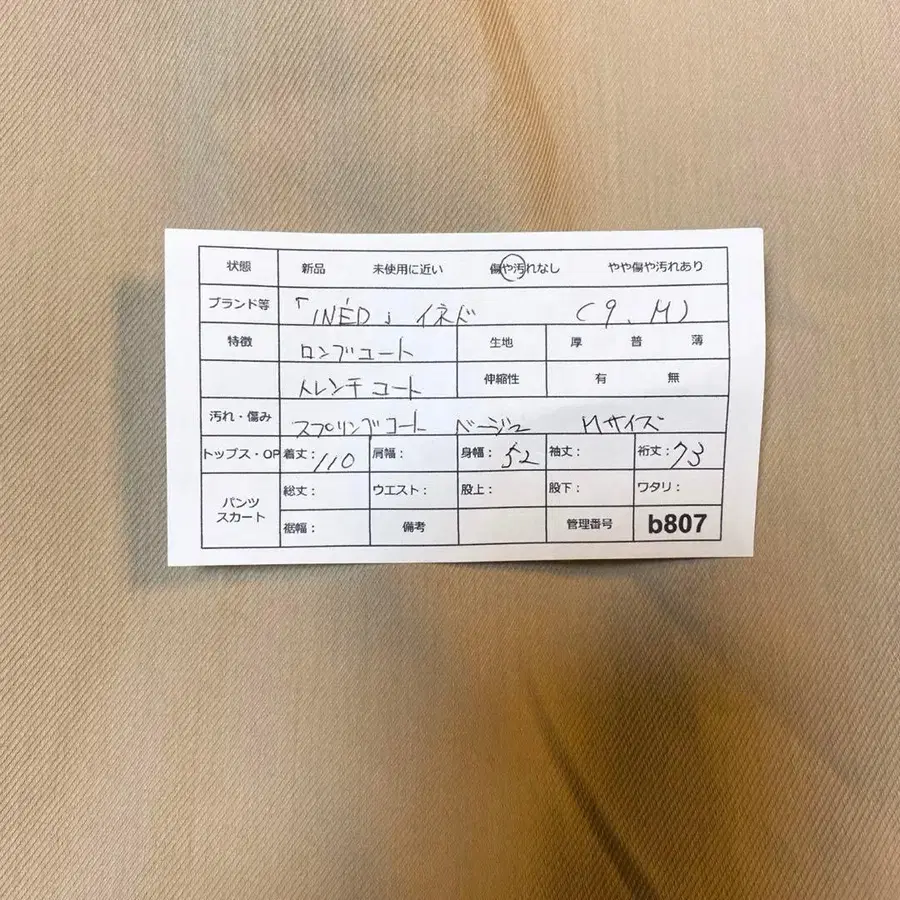 状態 新品 未使用に近い 傷や汚れなし やや傷や汚れあり
ブランド等 「INÉD」 イネド (9、M)
特徴 ロングコート 生地 厚 普 薄
トレンチコート 伸縮性 有 無
汚れ・傷み スプリングコート ベージュ Mサイズ
トップス・OP 着丈：110 肩幅： 身幅：52 袖丈： 裄丈：73
パンツ スカート 総丈： ウエスト： 股上： 股下： ワタリ：
裾幅： 備考 管理番号 b807